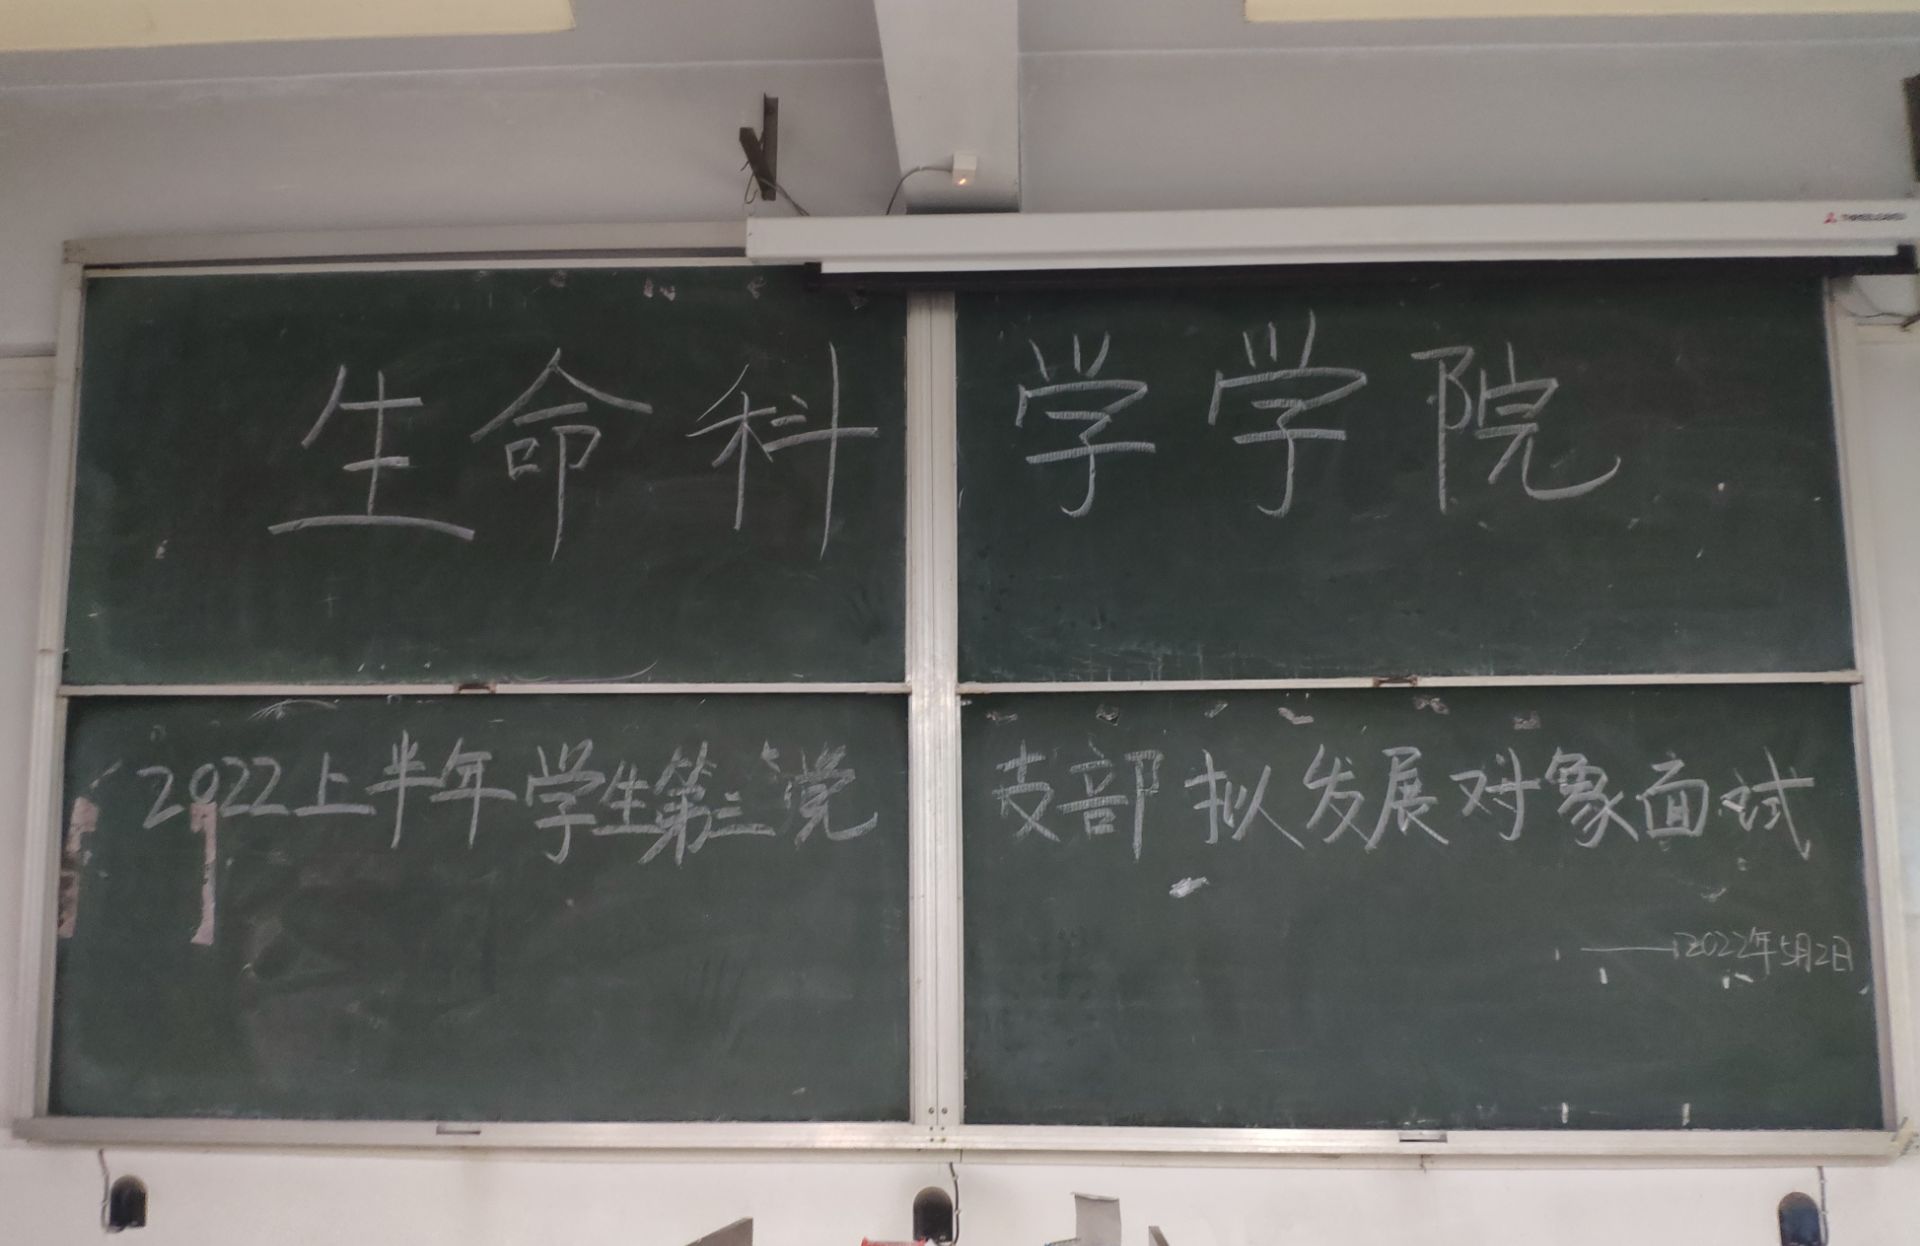 生命科学学院
2022上半年学生第三党支部拟发展对象面试
——2022年5月2日